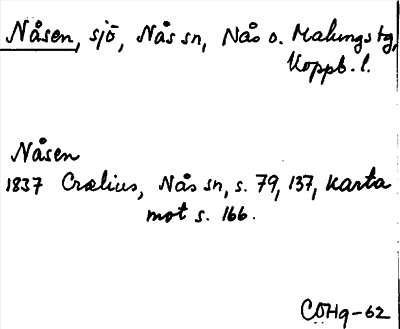 Nåsen, sjö, Nås sn, Nås o. Malungs tg,
Koppb. l.
Nåsen
1837 Crælius, Nås sn, s. 79, 137, karta
mot s. 166.
COHg-62